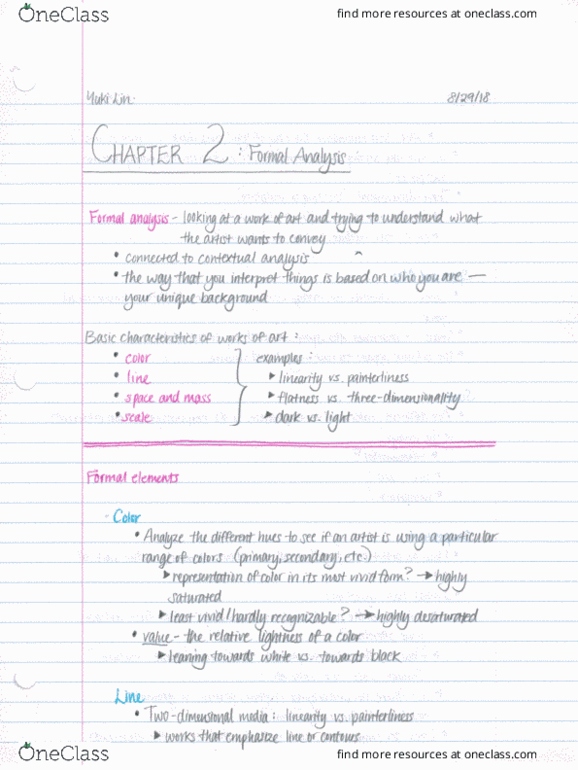 OneClass
find more resources at oneclass.com
Yuki Lin
8/29/18
CHAPTER 2: Formal Analysis
Formal analysis - looking at a work of art and trying to understand what
the artist wants to convey
• connected to contextual analysis
• the way that you interpret things is based on who you are —
your unique background
Basic characteristics of works of art:
• color
• line
• space and mass
• scale
examples:
▸ linearity vs. painterliness
▸ flatness vs. three-dimensionality
▸ dark vs. light
Formal elements
- Color
• Analyze the different hues to see if an artist is using a particular
range of colors (primary, secondary, etc)
▸ representation of color in its most vivid form? → highly
saturated
▸ least vivid/hardly recognizable? → highly desaturated
• value - the relative lightness of a color
▸ leaning towards white vs. towards black
Line
• Two-dimensional media: linearity vs. painterliness
▸ works that emphasize line or contours
OneClass
find more resources at oneclass.com